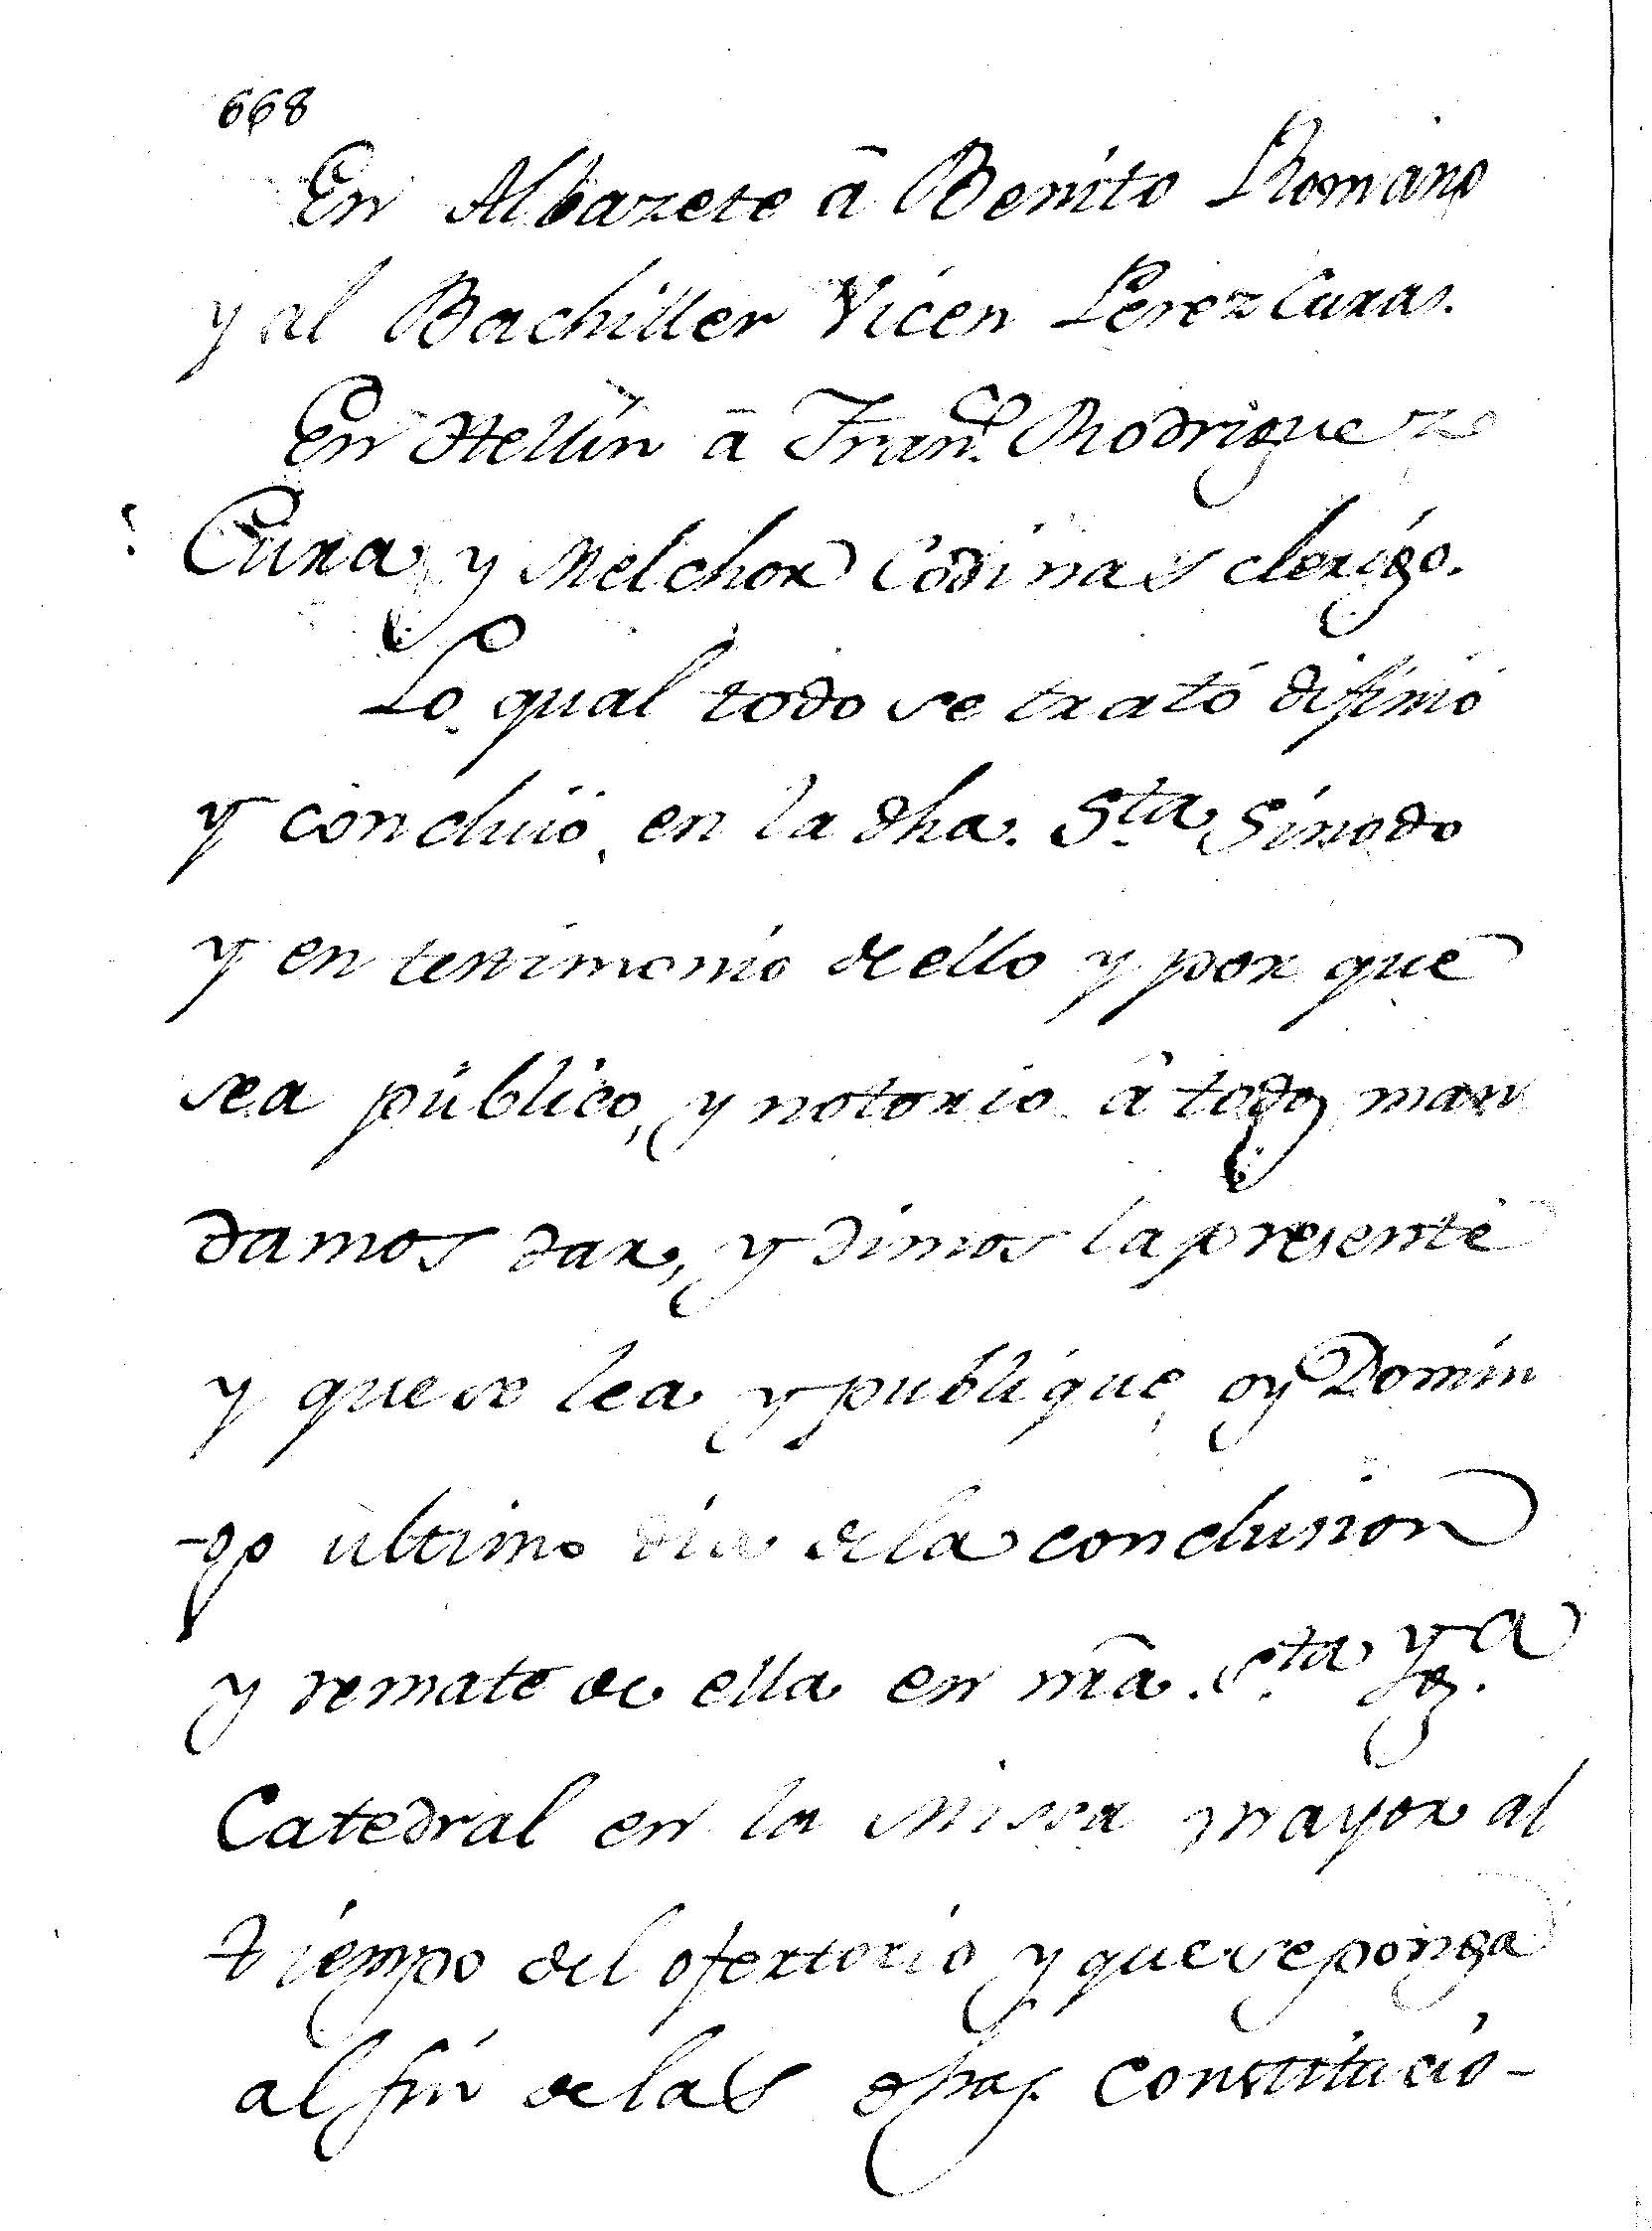 668
En Albazete â Benito Romano
y al Bachiller Vicen Perez Curas.
En Hellin â Fran.co Rodriguez
Cura y Melchor Codinas clerigo.
Lo qual todo se trató difinió
y concluió en la dha. S.ta Sinodo
y en testimonio de ello y por que
sea público, y notorio â todos man
damos dar, y dimos la presente
y que se lea y publique, oy Domin
-go ultimo dia de la conclusion
y remate de ella en nrã. S.ta Yg.a
Catedral en la Missa mayor al
tiempo del ofertorio y que se ponga
al fin de las dhas. constitucio-